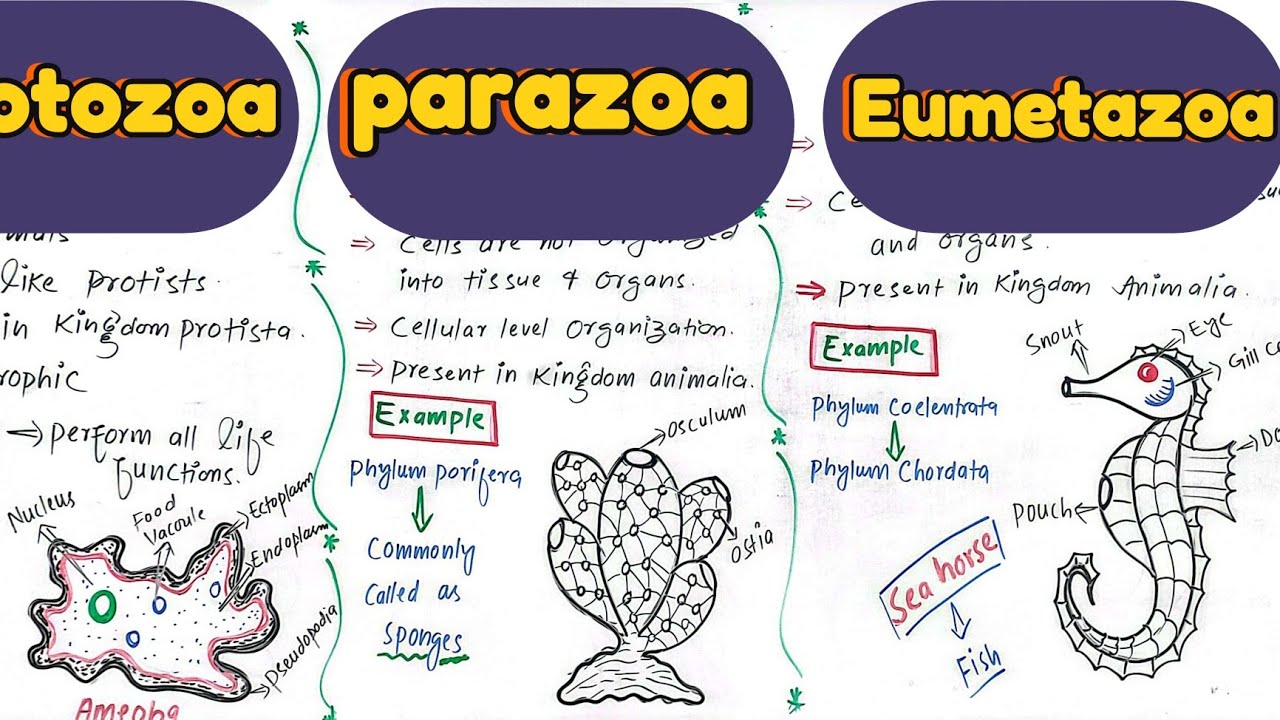 otozoa
like protists.
in Kingdom protista.
rophic
⇒ perform all life
functions.
Nucleus
Food
Vacoule
Ectoplasm
Endoplasm
Pseudopodia
Ameoba
parazoa
⇒ Cells are not organized
into tissue & organs.
⇒ Cellular level Organization.
⇒ present in Kingdom animalia.
Example
phylum porifera
Commonly
Called as
Sponges
Osculum
Ostia
Eumetazoa
⇒
⇒ Ce
and organs.
⇒ present in Kingdom Animalia.
Example
phylum Coelentrata
phylum Chordata
Sea horse
Fish
Snout
Eye
Gill Co
Do
Pouch